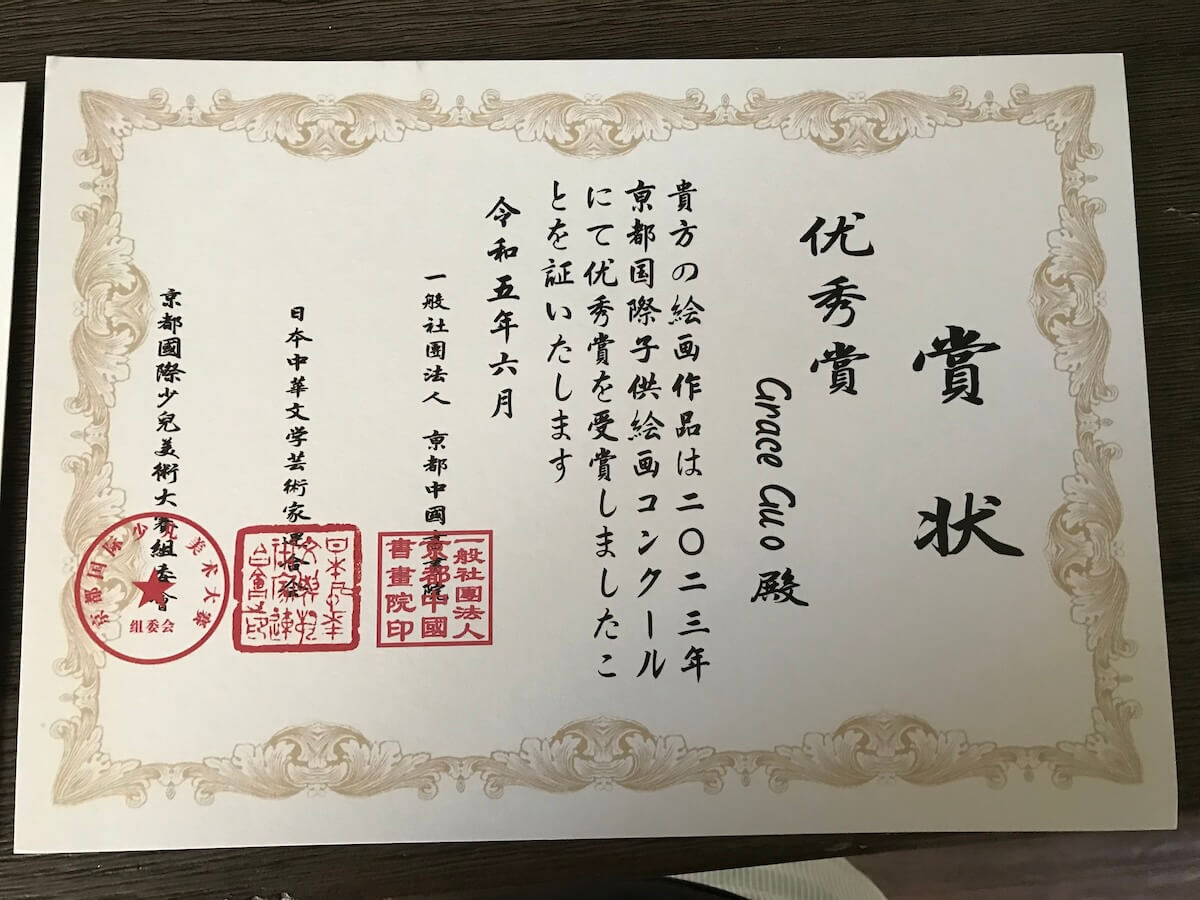 賞状
优秀賞
Grace Guo 殿
貴方の絵画作品は二〇二三年
京都国際子供絵画コンクール
にて优秀賞を受賞しましたこ
とを証いたします
令和五年六月
一般社團法人 京都中國書畫院
一般社團法人
京都中國
書畫院印
日本中華文学芸術家連合
京都國際少兒美術大賽組委會
京都国际少儿美术大赛
组委会